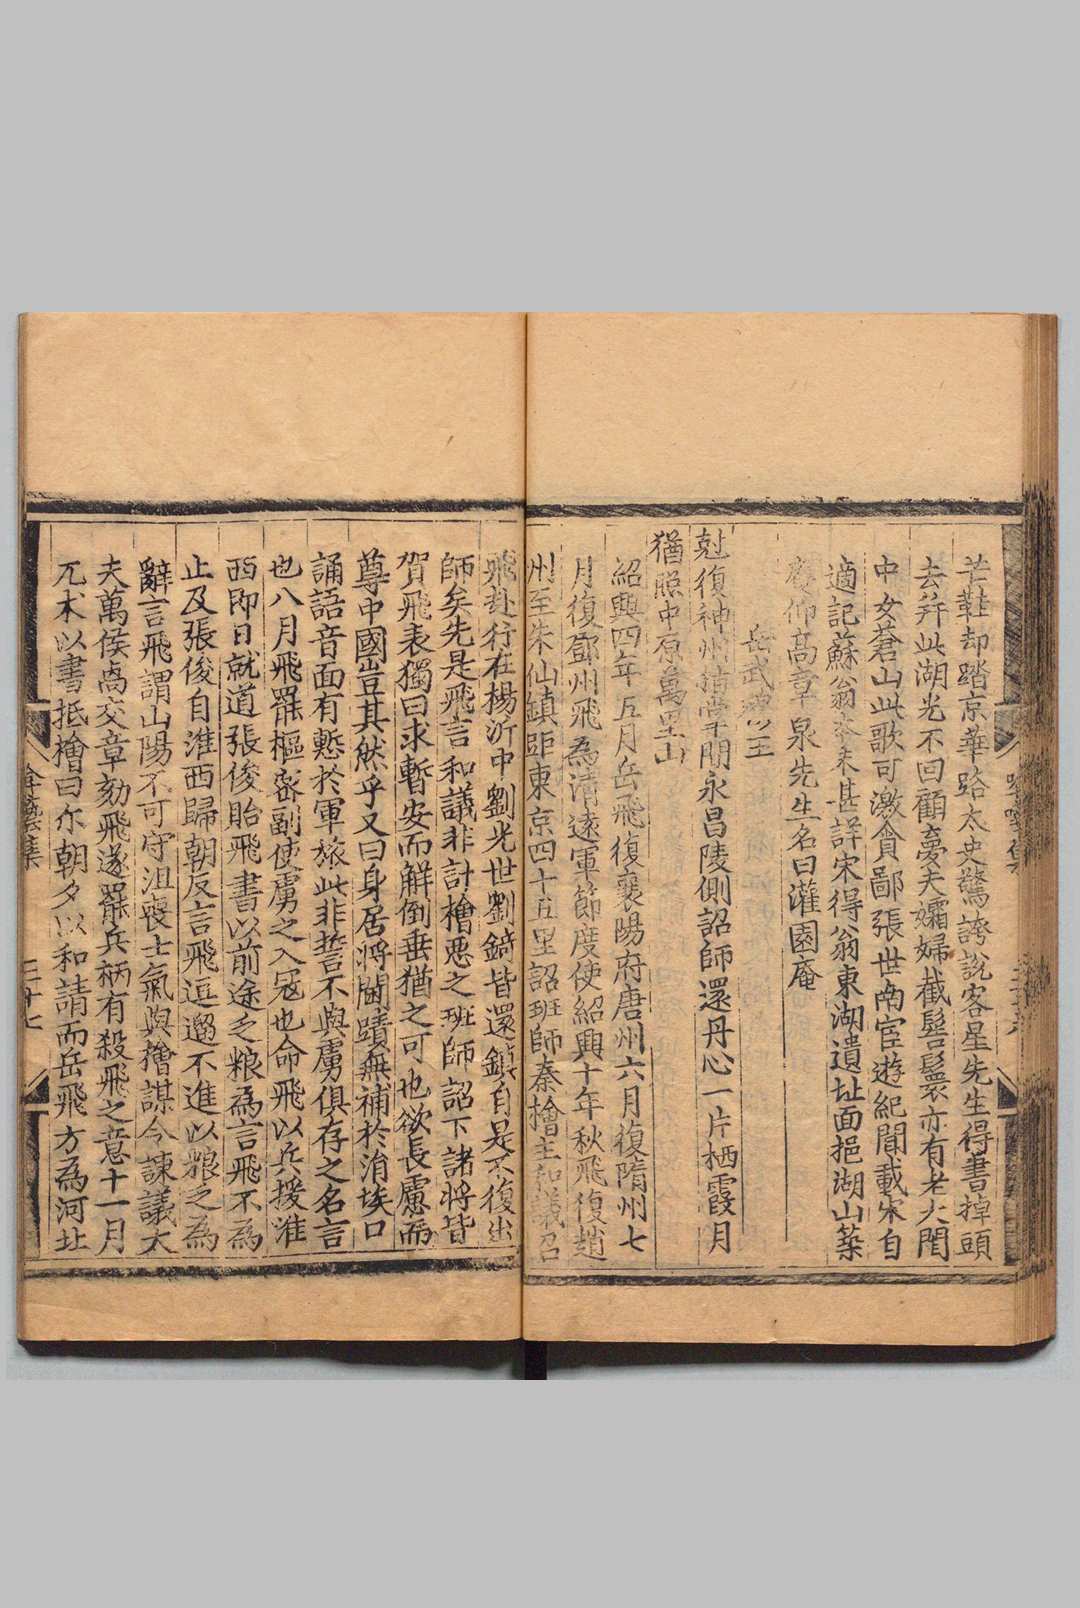 芒鞋却踏京華路太史驚誇說客星先生得書掉頭
去弃此湖光不回顧憂夫孀婦截髻鬟亦有老大閒
中女蒼山此歌可激貪鄙張世南宦遊紀聞載宋自
適記蘇翁本末甚詳宋得翁東湖遺址面挹湖山築
慶仰高章泉先生名曰灌園庵
岳武穆王
尅復神州指掌閒永昌陵側詔師還丹心一片栖霞月
猶照中原萬里山
紹興四年五月岳飛復襄陽府唐州六月復隋州七
月復鄧州飛為清遠軍節度使紹興十年秋飛復趙
州至朱仙鎮距東京四十五里詔班師秦檜主和議召
飛赴行在楊沂中劉光世劉錡皆還鎮自是不復出
師矣先是飛言和議非計檜惡之班師詔下諸將皆
賀飛表獨曰求暫安而解倒垂猶之可也欲長慮而
尊中國豈其然乎又曰身居將閫蹟無補於涓埃口
誦語音面有慙於軍旅此非誓不與虜俱存之名言
也八月飛罷樞密副使虜之入冦也命飛以兵援淮
西即日就道張俊貽飛書以前途乏粮為言飛不為
止及張俊自淮西歸朝反言飛逗遛不進以粮乏為
辭言飛謂山陽不可守沮喪士氣與檜謀令諫議大
夫萬侯卨交章劾飛遂罷兵柄有殺飛之意十一月
兀朮以書抵檜曰尒朝夕以和請而岳飛方為河北
三十七